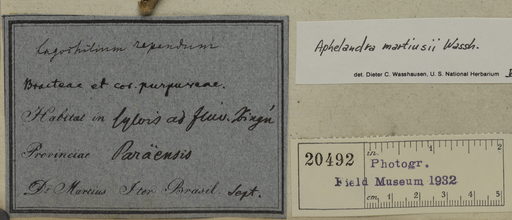 Lagochilium rependum
Bracteae et cor. purpureae.
Habitat in sylvis ad fluv. Xingú
Provinciae Paraënsis
Dr. Martius Iter Brasil. Sept.
Aphelandra martiusii Wassh.
det. Dieter C. Wasshausen, U. S. National Herbarium
20492
in. 1 2
Photogr.
Field Museum 1932
cm. 1 2 3 4 5